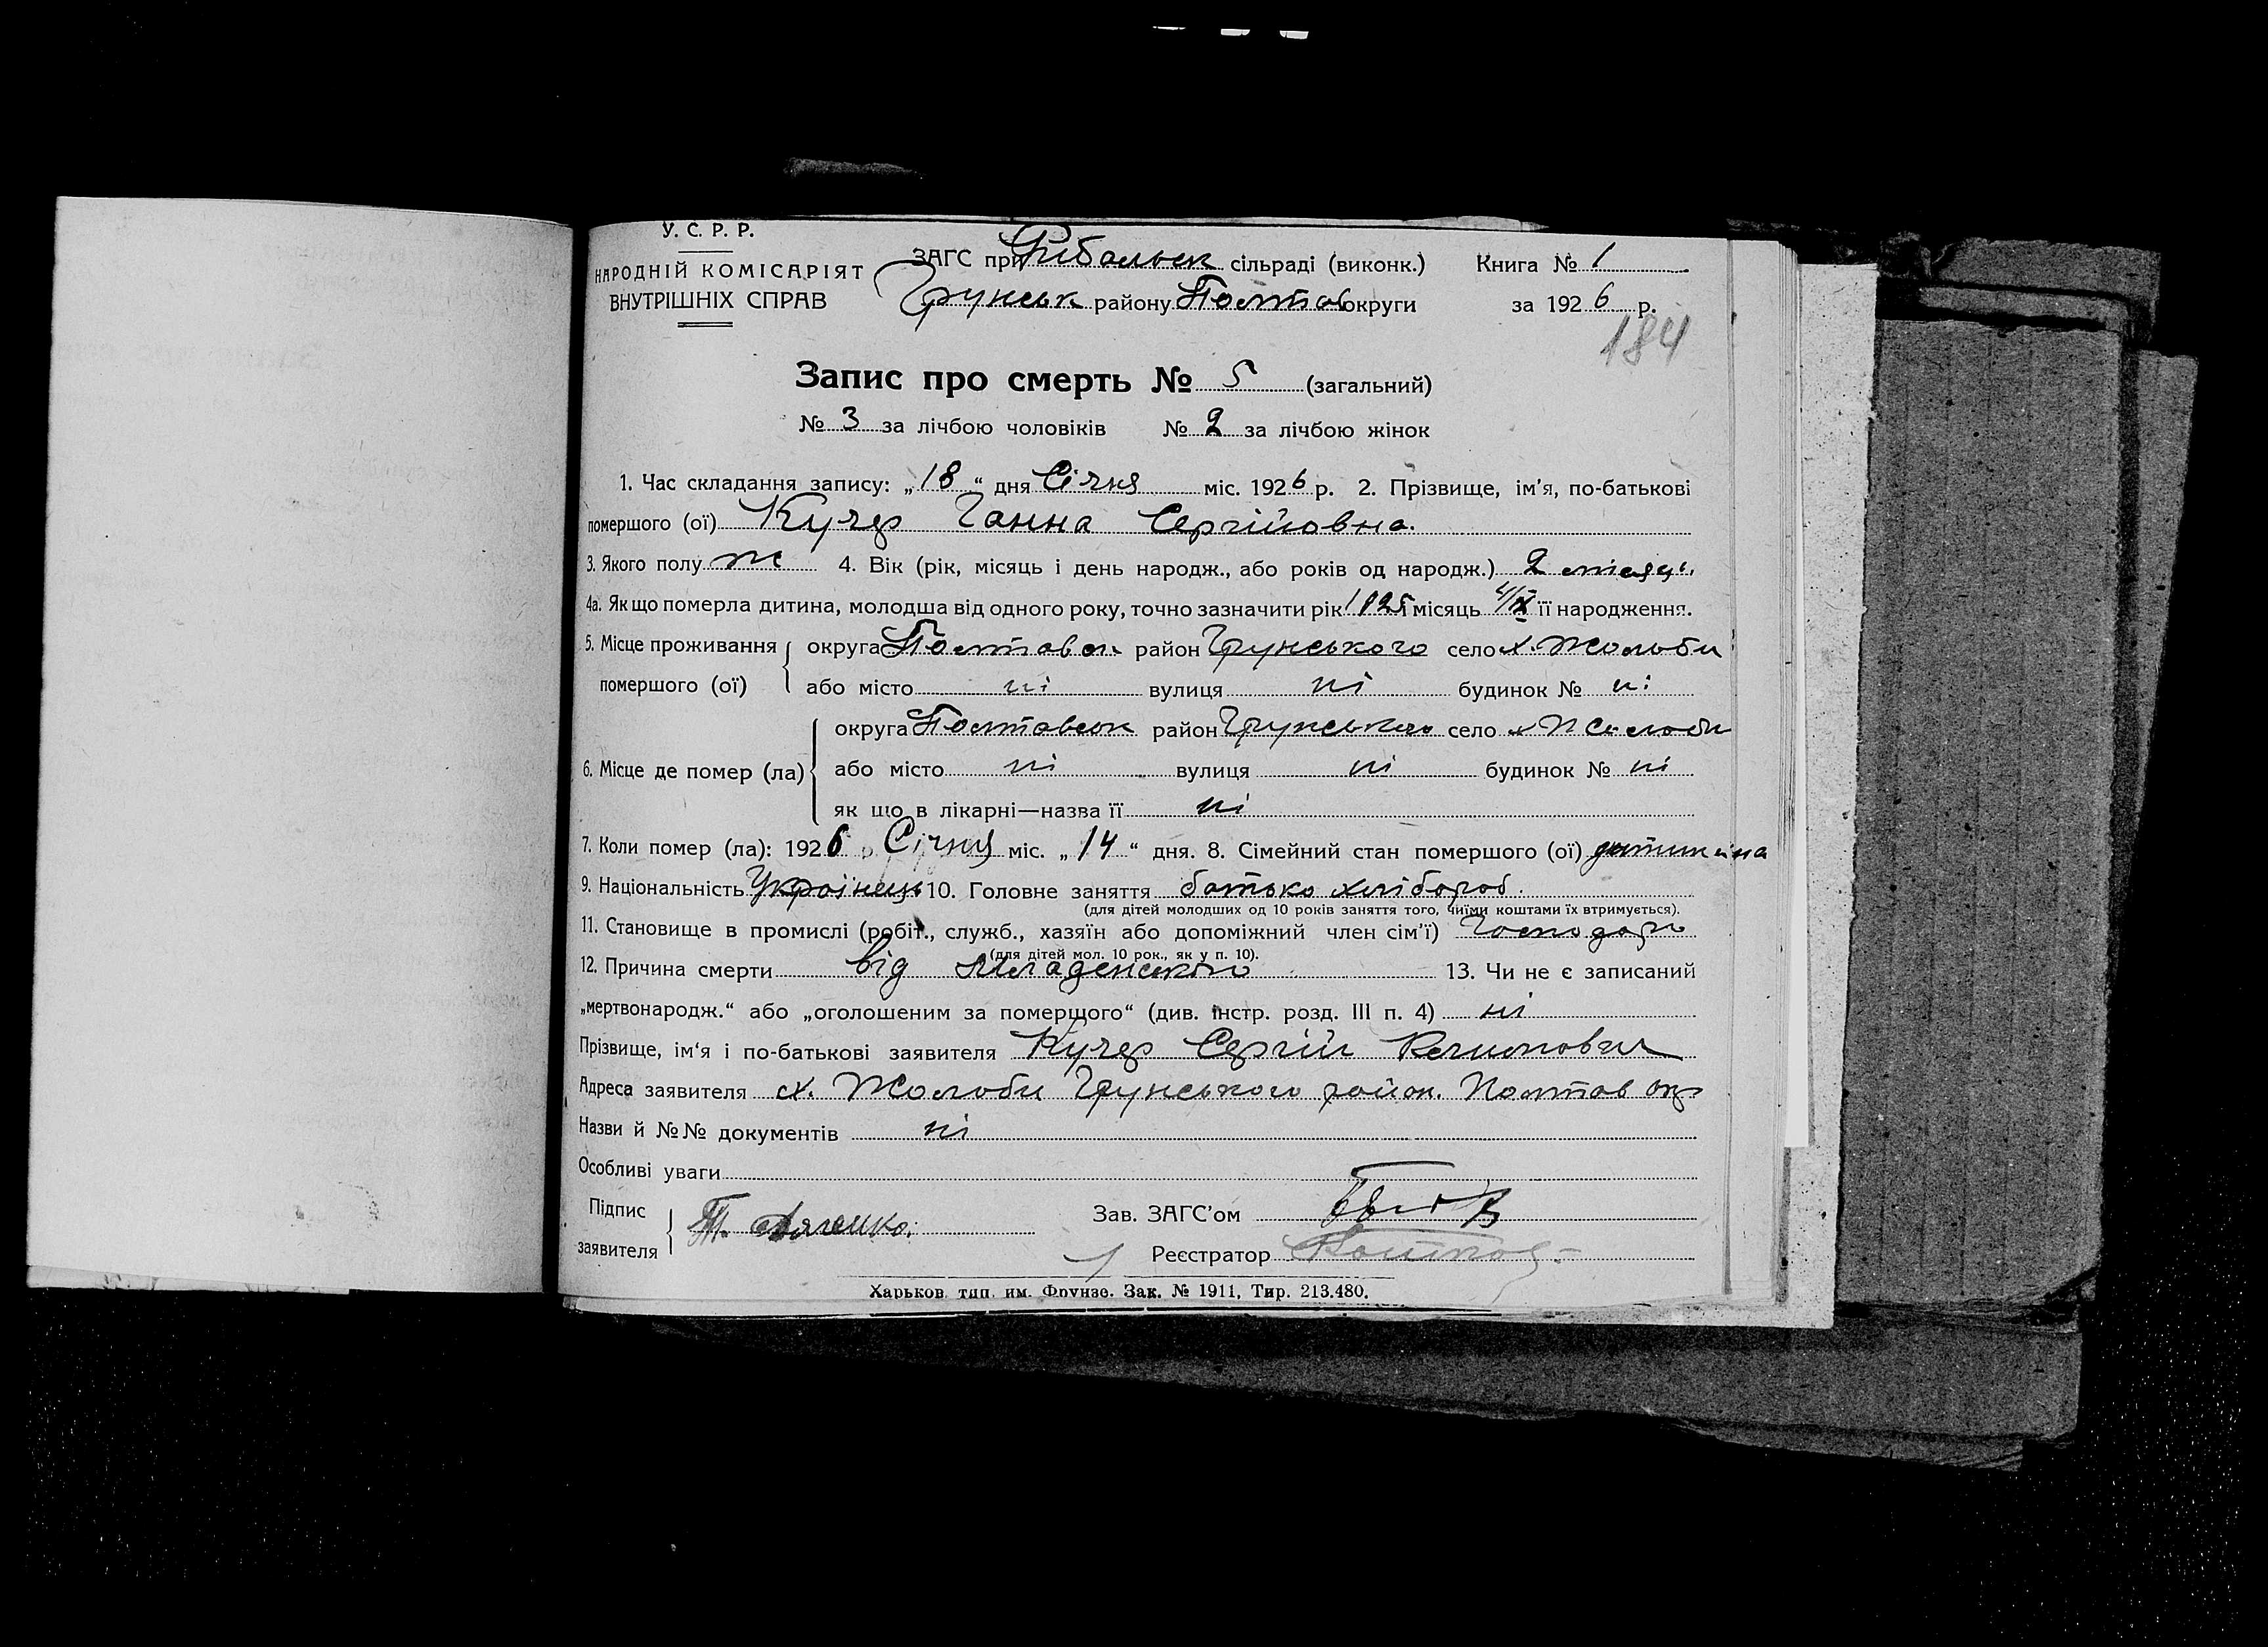 У. С. Р. Р.
НАРОДНІЙ КОМІСАРІЯТ
ВНУТРІШНІХ СПРАВ
ЗАГС при Рибальськ сільраді (виконк.) Книга № 1
Грунськ району Полтав округи за 1926 р.
184
Запис про смерть № 5 (загальний)
№ 3 за лічбою чоловіків № 2 за лічбою жінок
1. Час складання запису: „18“ дня Січня міс. 1926 р. 2. Прізвище, ім'я, по-батькові
помершого (ої) Кучер Ганна Сергійовна.
3. Якого полу ж 4. Вік (рік, місяць і день народж., або років од народж.) 2 місяці.
4а. Як що померла дитина, молодша від одного року, точно зазначити рік 1925 місяць її народження.
5. Місце проживання округа Полтавськ район Грунського село х. Жолоби
помершого (ої) або місто ні вулиця ні будинок № ні
округа Полтавськ район Грунського село х Жолоби
6. Місце де помер (ла) або місто ні вулиця ні будинок № ні
як що в лікарні—назва її ні
7. Коли помер (ла): 1926 Січня міс. „14“ дня. 8. Сімейний стан помершого (ої) дитина
9. Національність Українець 10. Головне заняття батько хлібороб.
(для дітей молодших од 10 років заняття того, чиїми коштами їх втримується).
11. Становище в промислі (робіт., служб., хазяїн або допоміжний член сім'ї) Господарь
(для дітей мол. 10 рок., як у п. 10).
12. Причина смерти від Младенського 13. Чи не є записаний
„мертвонародж.“ або „оголошеним за померщого“ (див. інстр. розд. III п. 4) ні
Прізвище, ім'я і по-батькові заявителя Кучер Сергій
Адреса заявителя х. Жолоби Грунського район. Полтав окр
Назви й №№ документів ні
Особливі уваги
Підпис
заявителя Т. Зав. ЗАГС'ом
Реєстратор
Харьков. тип. им. Фрунзе. Зак. № 1911, Тир. 213.480.